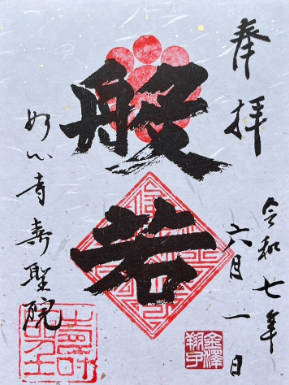 奉拝
令和七年
六月一日
般若
妙心寺寿聖院
金澤
翔子